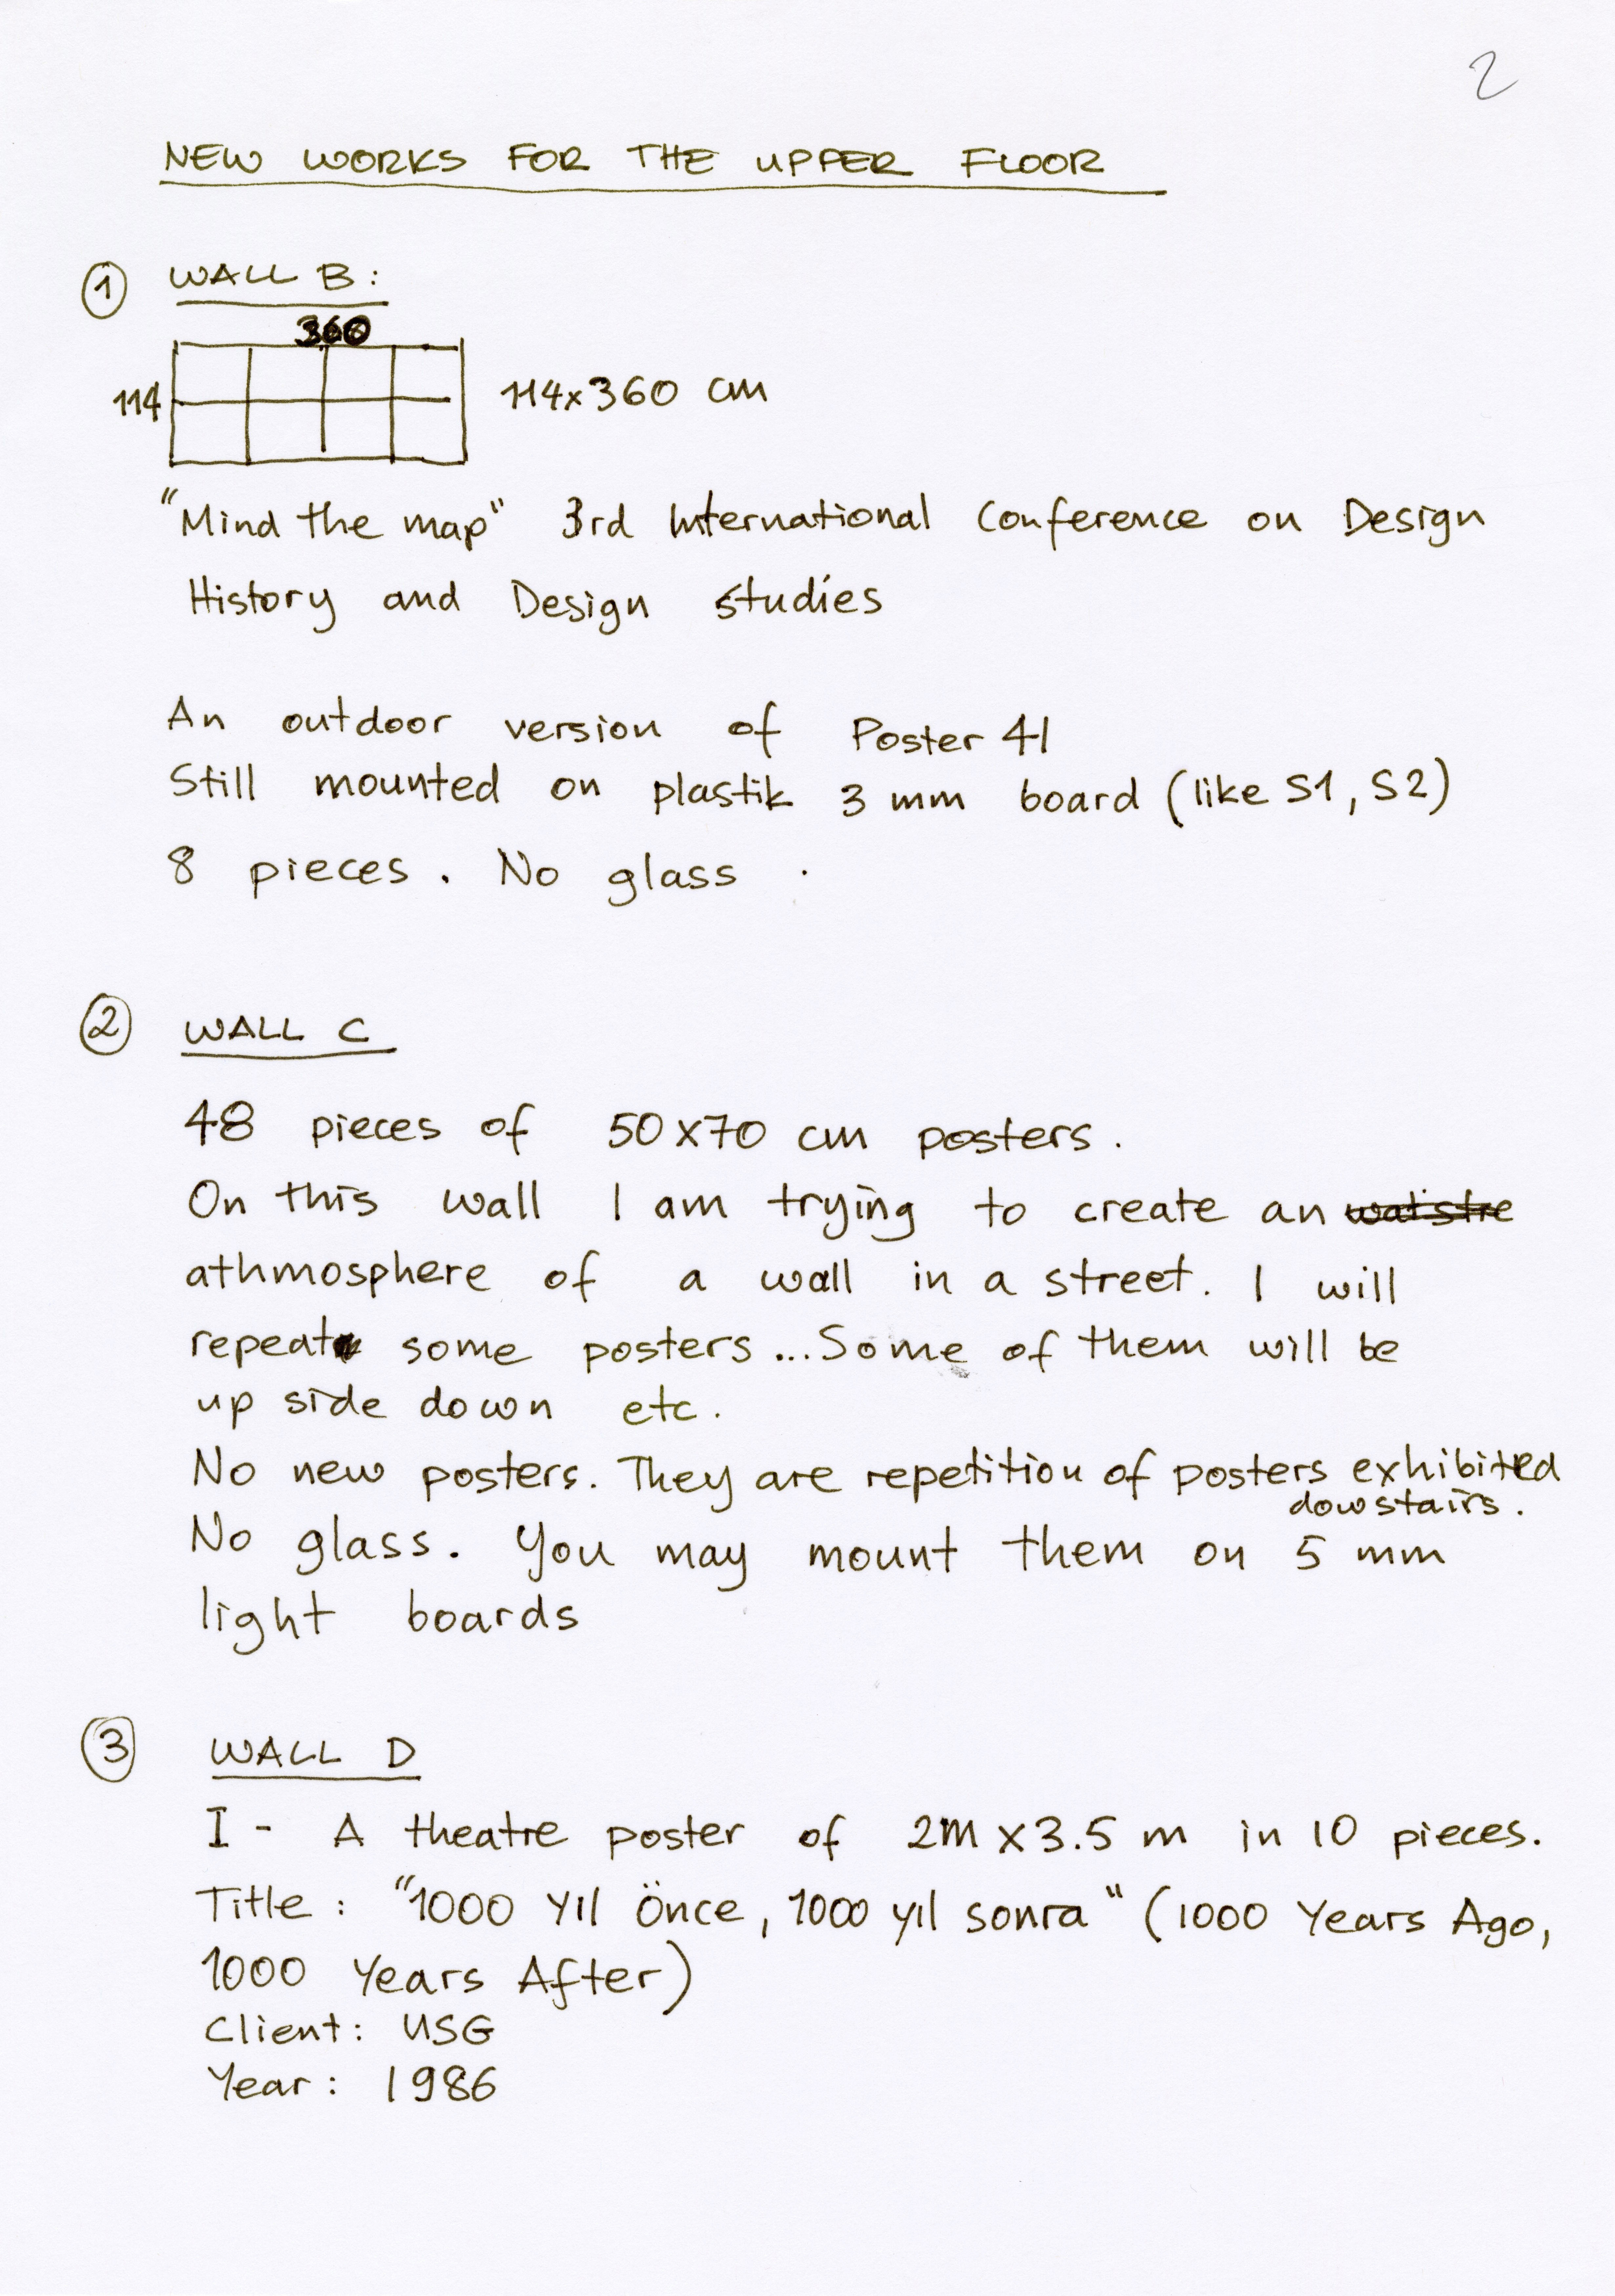 2
NEW WORKS FOR THE UPPER FLOOR
1 WALL B:
360
114
114x360 cm
"Mind the map" 3rd International Conference on Design
History and Design studies
An outdoor version of Poster 41
Still mounted on plastik 3 mm board (like S1, S2)
8 pieces. No glass.
2 WALL C
48 pieces of 50x70 cm posters.
On this wall I am trying to create an
athmosphere of a wall in a street. I will
repeat some posters...Some of them will be
up side down etc.
No new posters. They are repetition of posters exhibited
dowstairs.
No glass. You may mount them on 5 mm
light boards
3 WALL D
I - A theatre poster of 2m x 3.5 m in 10 pieces.
Title: "1000 yıl Önce, 1000 yıl sonra" (1000 Years Ago,
1000 Years After)
Client: USG
Year: 1986